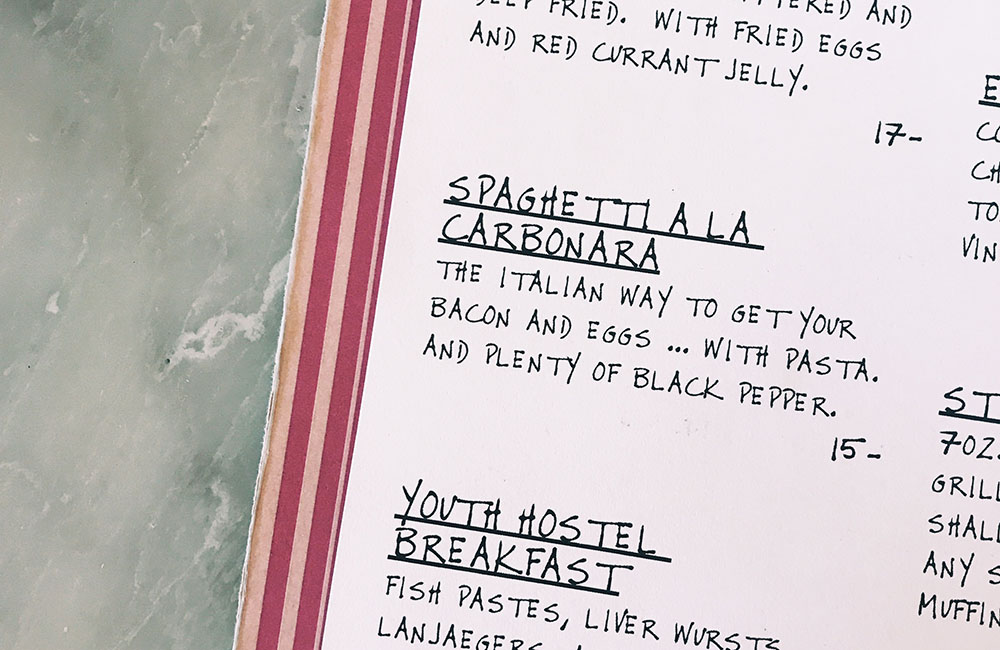 FRIED. WITH FRIED EGGS
AND RED CURRANT JELLY.
17-
SPAGHETTI A LA
CARBONARA
THE ITALIAN WAY TO GET YOUR
BACON AND EGGS ... WITH PASTA.
AND PLENTY OF BLACK PEPPER.
15-
YOUTH HOSTEL
BREAKFAST
FISH PASTES, LIVER WURSTS
LANJAEGERS,
ST
7OZ.
GRILL
SHALL
ANY S
MUFFIN